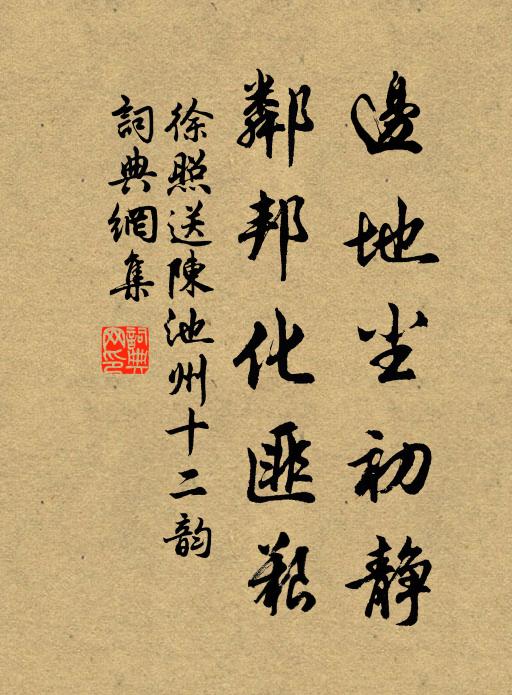 邊地尘初静
鄰邦化匪艱
徐照送陳池州十二韵
詞典網集
詞典网印